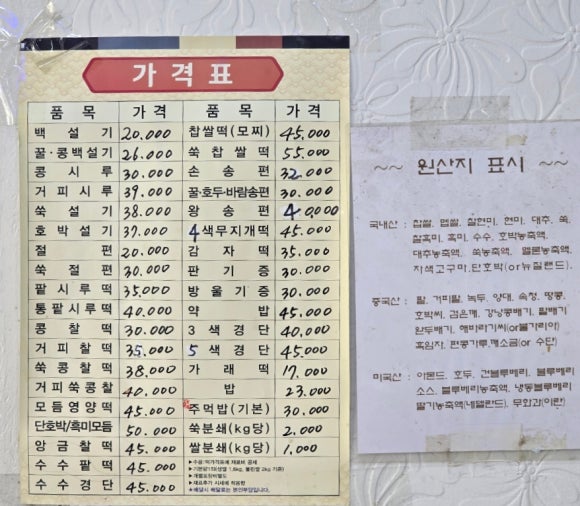 가격표
품목 가격 품목 가격
백설기 20.000 찹쌀떡(모찌) 45.000
꿀·콩백설기 26.000 쑥찹쌀떡 55.000
콩시루 30.000 손송편 32.000
거피시루 39.000 꿀·호두·바람송편 30.000
쑥설기 38.000 왕송편 40,000
호박설기 37.000 4색무지개떡 45.000
절편 20.000 감자떡 35.000
쑥절편 30.000 판기증 30.000
팥시루떡 35.000 방울기증 30.000
통팥시루떡 40.000 약밥 45.000
콩찰떡 30.000 3색경단 40,000
거피찰떡 35.000 5색경단 45.000
쑥콩찰떡 38.000 가래떡 17.000
거피쑥콩찰 40.000 밥 23.000
모듬영양떡 45.000 주먹밥(기본) 30.000
단호박/흑미모듬 50.000 쑥분쇄(kg당) 2.000
앙금찰떡 45.000 쌀분쇄(kg당) 1.000
수수팥떡 45.000
수수경단 45.000
~~ 원산지 표시 ~~
국내산 : 찹쌀, 멥쌀, 찰현미, 현미, 대추, 쑥,
찰흑미, 흑미, 수수, 호박농축액,
대추농축액, 쑥농축액, 멜론농축액,
자색고구마,단호박(or뉴질랜드).
중국산 : 팥, 거피팥, 녹두, 양대, 속청, 땅콩,
호박씨, 검은깨, 강낭콩배기, 팥배기
완두배기, 해바라기씨(or불가리아)
흑임자, 편콩가루,깨소금(or 수단)
미국산 : 아몬드, 호두, 건블루베리, 블루베리
소스, 블루베리농축액, 냉동블루베리
딸기농축액(네덜란드), 무화과(이란)